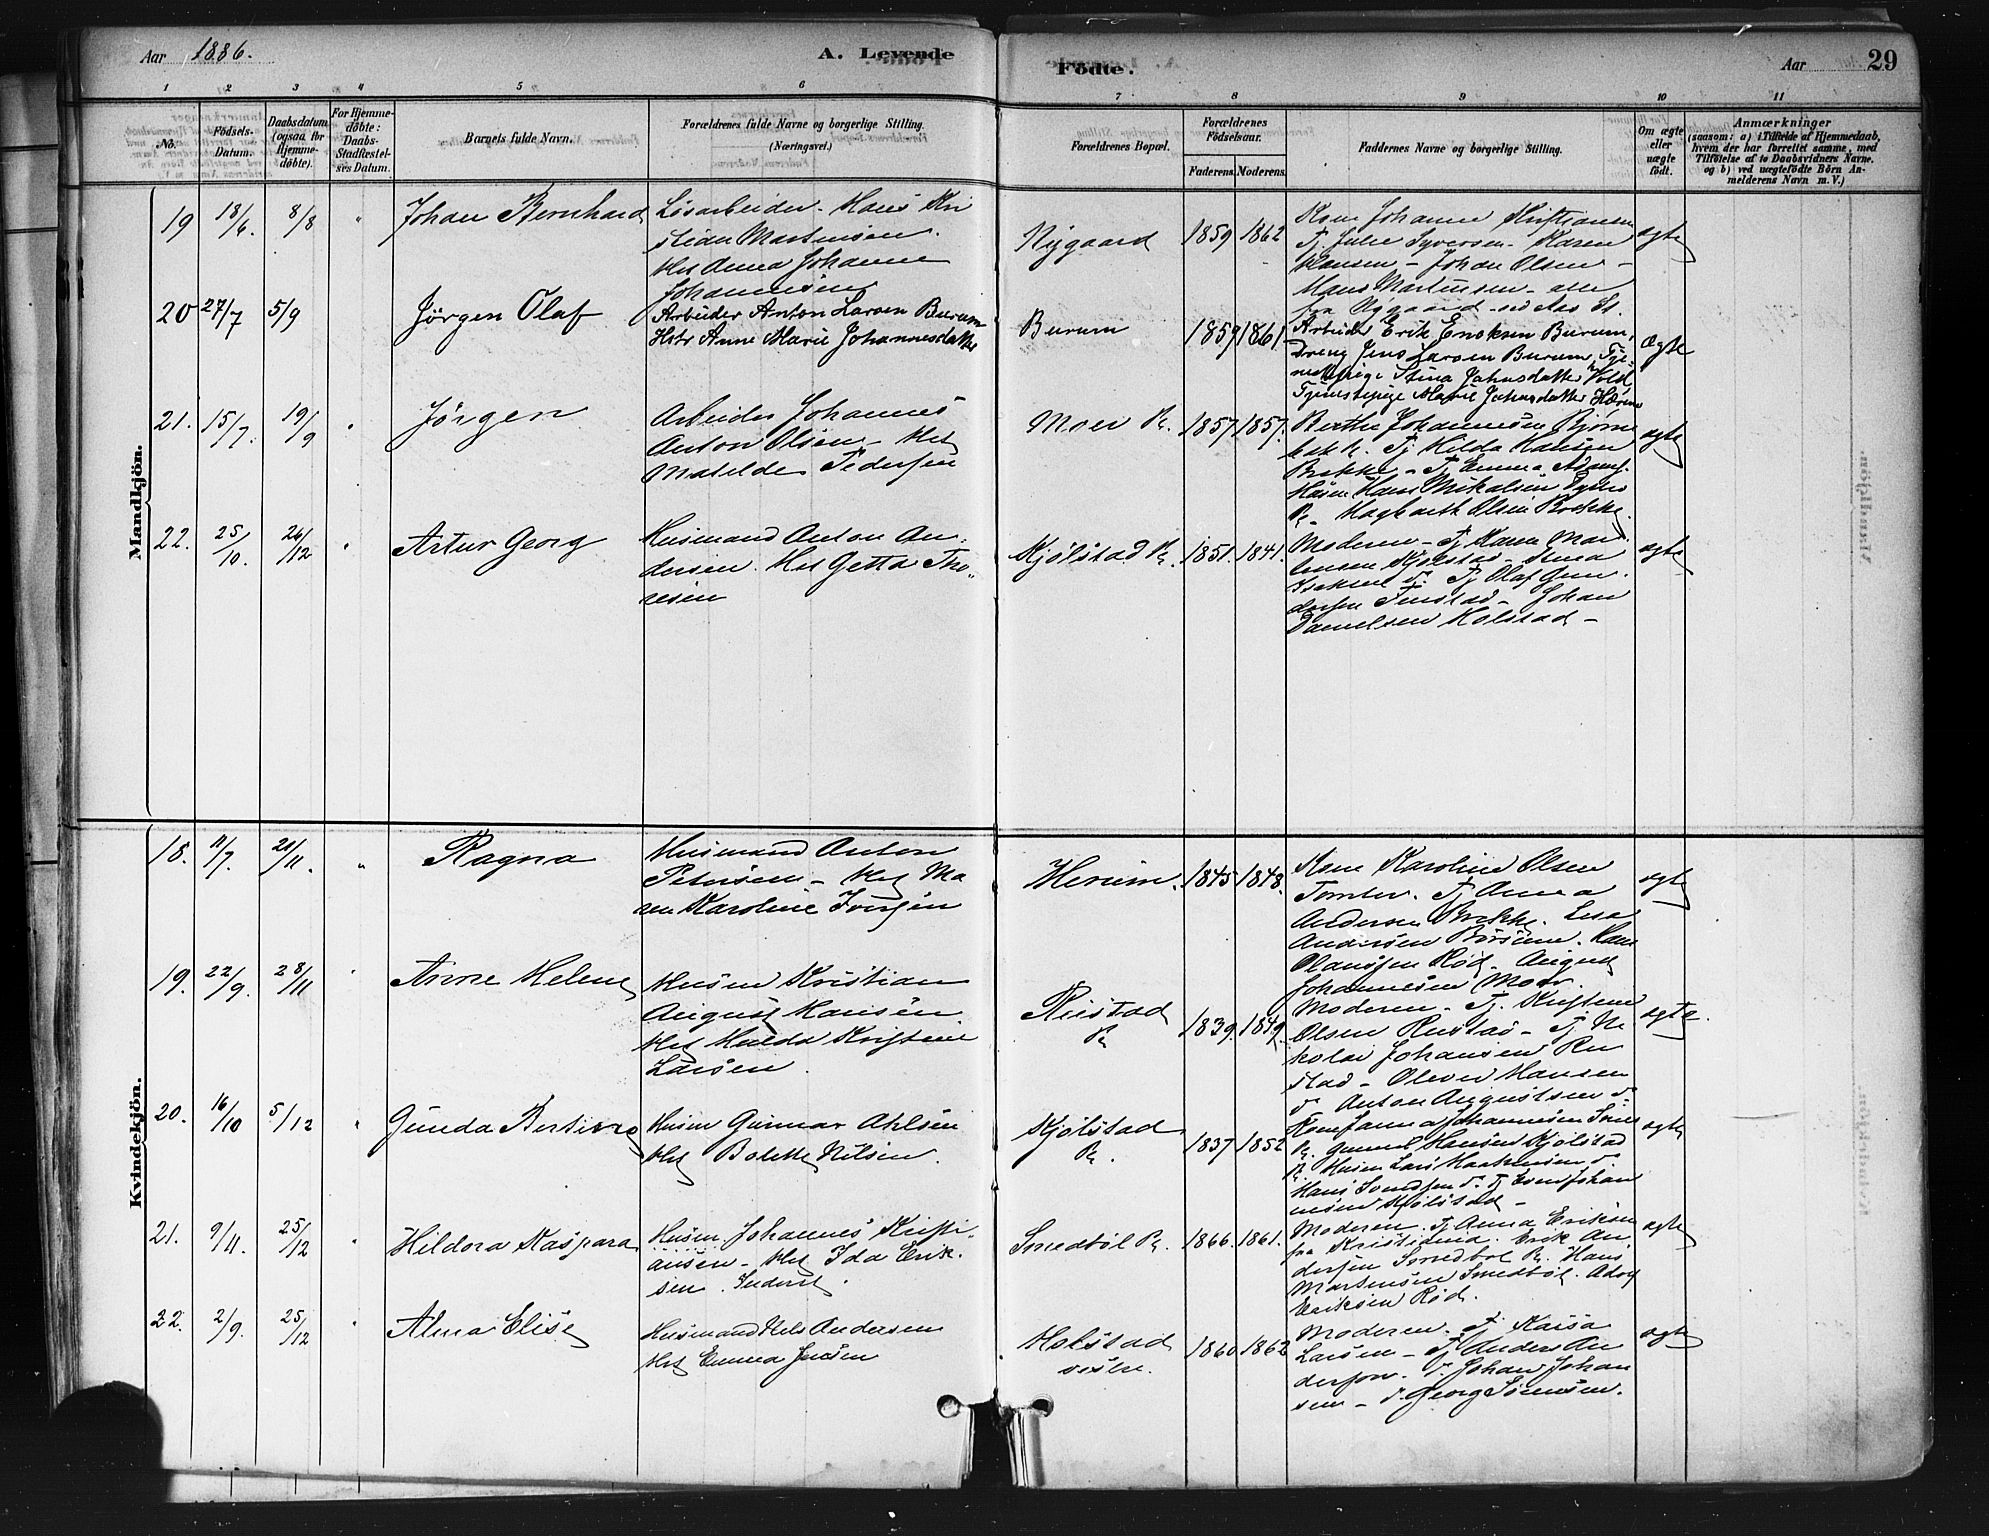 Aar 1886.
A. Levende
Födte.
Aar
29
1 2 3 4 5 6 7 8 9 10 11
No.
Födsels-
Datum.
Daabsdatum
(ogsaa for
Hjemme-
döbte).
For Hjemme-
döbte:
Daabs-
Stadfæstel-
ses Datum.
Barnets fulde Navn.
Forældrenes fulde Navne og borgerlige Stilling.
(Næringsvei.)
Forældrenes Bopæl.
Forældrenes
Födselsaar.
Faderens. Moderens.
Faddernes Navne og borgerlige Stilling.
Om ægte
eller
uægte
födt.
Anmærkninger
(saasom: a) i Tilfælde af Hjemmedaab,
hvem der har forrettet samme, med
Tilföielse af to Daabsvidners Navne.
og b) ved uægtefödte Börn An-
melderens Navn m. V.)
Mandkjön.
19 18/6. 8/8 " Johan Bernhard
Lösarbeider - Hans Kri
stian Martinsen.
Hst Anna Johanne
Johannesen
Nygaard 1859 1862
Kone Johanne Kristjansen
Tj. Julie Syversen - Karen
Hansen - Johan Olsen -
Hans Martinsen - alle
fra Nygaard ved Aas St.
ægte
20 27/7 5/9 Jörgen Olaf
Arbeider Anton Larsen Burum
Hstr Anne Marie Johannesdatter
Burum 1859 1861
Arbeider Erik Eriksen Burum,
Dreng Jens Larsen Burum, Tje-
nestepige Stina Jahnsdatter Vold
Tjenestepige Marie Jahnsdatter Hærum
Ægte
21. 15/7. 19/9 " Jörgen
Arbeider Johannes
Anton Olsen - Hst
Matilde Pedersen
Moer P. 1857 1857.
Berthe Johannesen Bjørne
bæk. Tj. Hilda Hansen
Brekke - Tj Emma Adams.
Hans Mikalsen
Hagbarth Olsen Brekke.
ægte
22. 25/10. 26/12 " Artur Georg
Husmand Anton An-
dersen. Hst Getta Tho-
resen
Kjölstad P. 1851. 1841.
Moderen - Tj Karen Mar
Kjölstad -
Tj Olaf Gun
dersen Finstad - Johan
Danielsen Holstad -
ægte
Kvindekjön.
18. 11/7. 21/11. " Ragna
Husmand Anton
Petersen - Hst Ma
ren Karoline Jörgen
Herum. 1845 1848.
Kone Karoline Olsen
Tomter. Tj Anna
Andersen Brekke. Lesa
Andersen Börsum. Karl
Olaussen Röd - August
Johannesen Moer.
ægte
19. 22/9. 28/11 " Anne Helene
Husm Kristian
August Hansen
Hst Hulda Kristine
Larsen.
Rustad
P. 1839. 1849.
Moderen - Tj. Kristine
Olsen Rustad - Tj Ni
kolai Johansen Ru
stad - Oluver Hansen
d. Anton Augustsen d.
ægte.
20. 16/10 5/12 " Gunda Bertine
Husm Gunnar Ahlsen
Hst Bolette Nilsen.
Kjölstad
P. 1837 1852
Kone Janna Johannesen
P. Gunnel Hansen Kjölstad
P. Husm Lars d.
Hans Svendsen d. Tj Even Johan
nesen Kjölstad -
ægte
21. 9/11. 25/12 " Hildora Kaspara
Husm. Johannes Kristi-
ansen - Hst Ida Erik-
sen.
Smedböl P. 1866. 1861.
Moderen. Tj Anna Eriksen
fra Kristiania. Erik An
dersen Smedböl P. Hans
Martinsen Smedböl. Adolf
Eriksen Röd.
ægte
22. 2/9. 25/12 " Alma Elise
Husmand Nils Andersen
Hst Emma Jensen
Holstad
vestre. 1860 1862
Moderen. Tj Kaisa
Larsen - Tj Anders An
derson. d. Johan Johan
sen - d. Georg Sörensen.
ægte